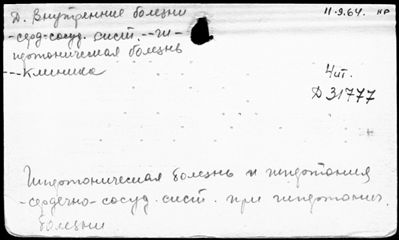 Д. Внутренние болезни 11.9.64. кр
-серд-сосуд. сист. --ги-
пертоническая болезнь
--Клиника
Чит.
Д 31777
Гипертоническая болезнь и гипертония
-сердечно-сосуд. сист. при гипертонич.
болезни